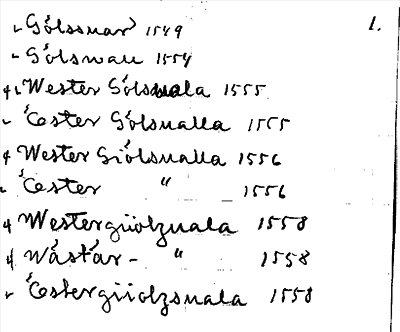 1.
Gölssnar 1549
Gölsnau 1554
Wester Gölsnala 1555
Öester Gölsnalla 1555
Wester Giölsnalla 1556
Öester " 1556
Westergiiolznala 1558
Wästar- " 1558
Östergiiolzsnala 1558